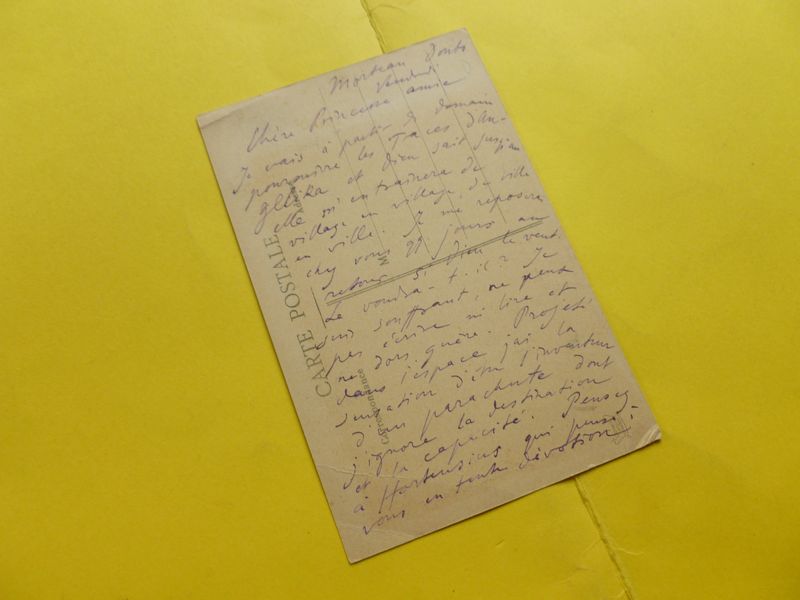 Morteau Doubs
Vendredi
Chère Princesse amie
Je vais à partir de demain
poursuivre les traces d'An-
gélika et Dieu sait jusqu'où
elle m'entraînera de
village en village de ville
en ville. Je me reposerai
chez vous jours au
retour si Dieu le veut.
Le voudra-t-il? Je
suis souffrant, ne peux
pas écrire ni lire et
ne dors guère. Projeté
dans l'espace j'ai la
sensation d'être l'inventeur
d'un parachute dont
j'ignore la destination
et la capacité. Pensez
à Hortensius qui pense à
vous en toute dévotion.
CARTE POSTALE
Correspondance
Adresse
M